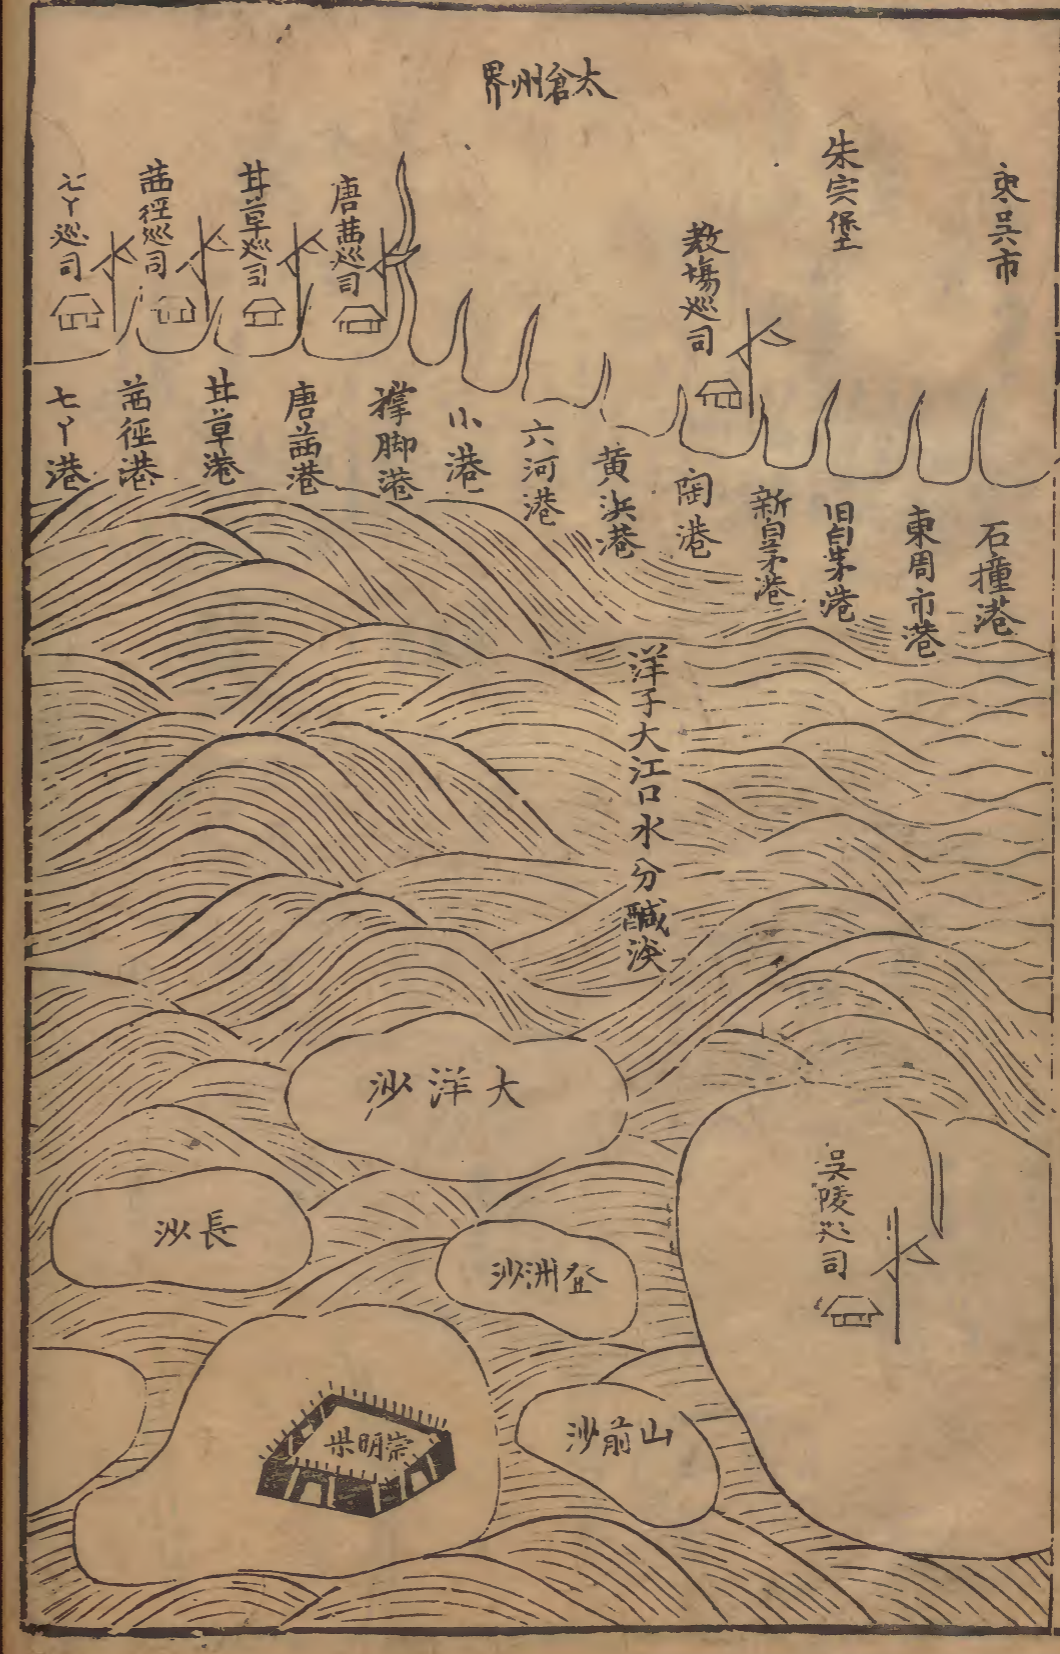 太倉州界
朱实堡
吳市
教塲巡司
唐茜巡司
甘草巡司
茜徑巡司
七丫巡司
石撞港
東周市港
旧白茅港
新白茅港
陶港
黄浜港
六河港
小港
撑脚港
唐茜港
甘草港
茜徑港
七丫港
洋子大江口水分醎淡
大洋沙
長沙
登洲沙
吳陵巡司
山前沙
崇明